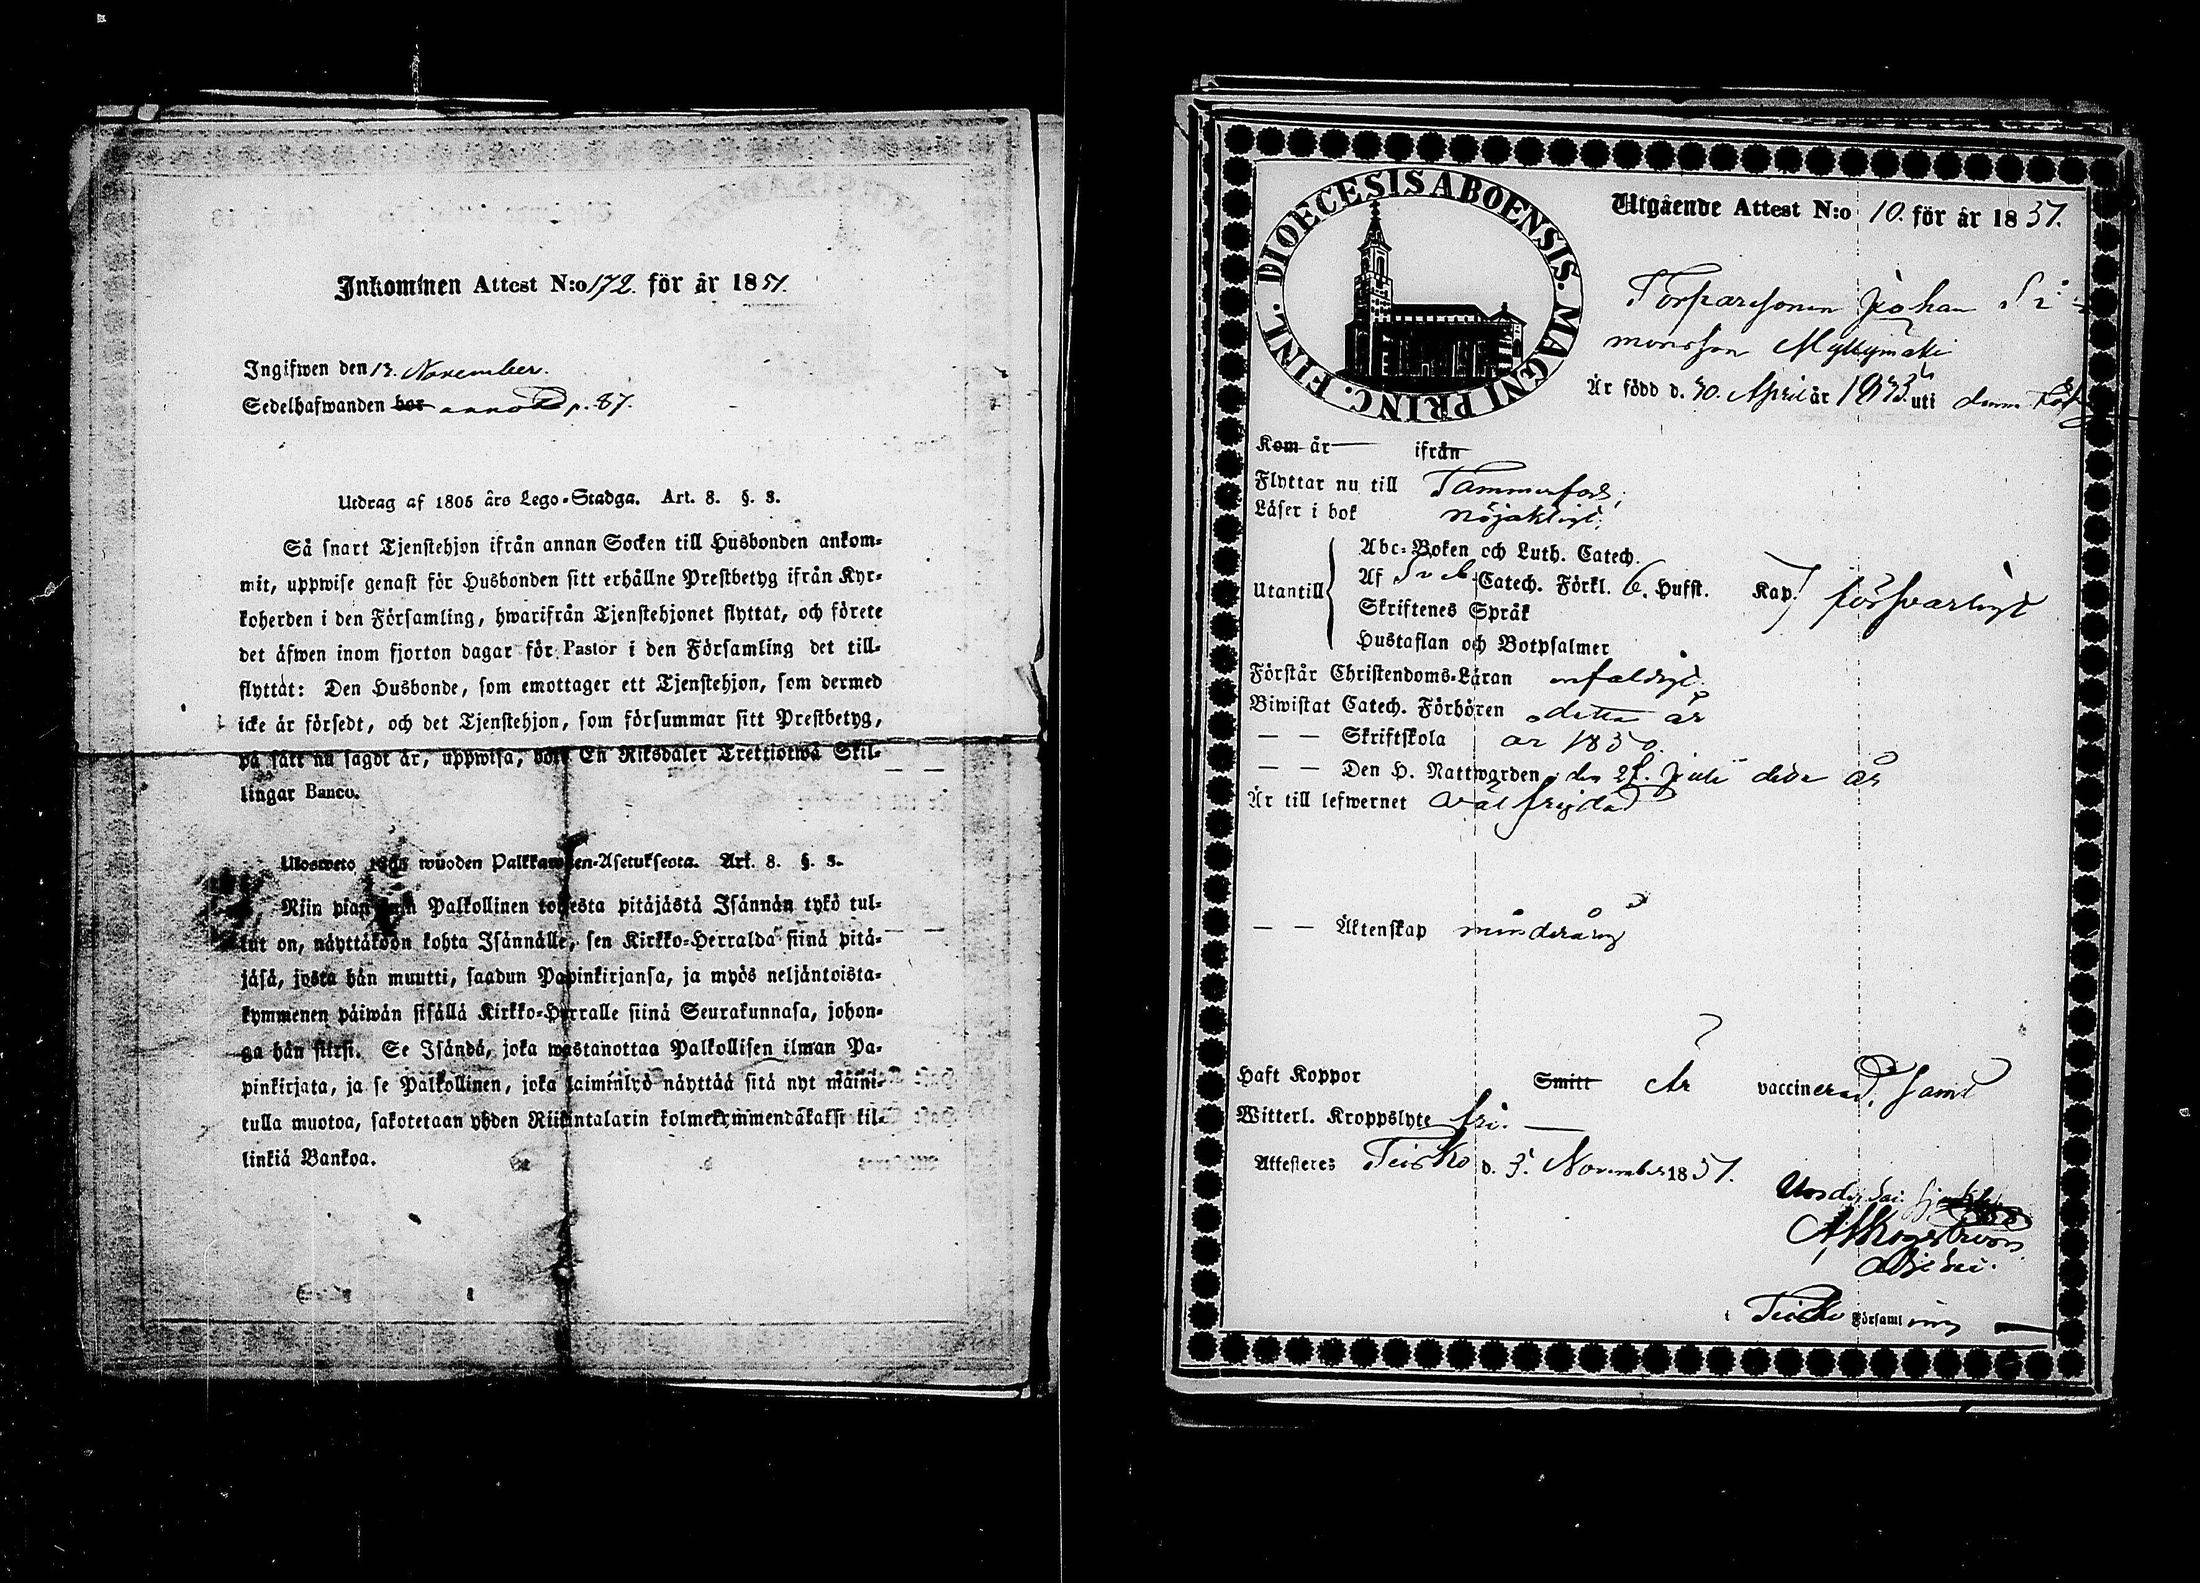 Inkommen Attest N:o 172. för år 1851.
Ingifwen den 13. November.
Sedelhafwanden bor annot p. 87.
Utdrag af 1805 års Lego-Stadga. Art. 8. §. 8.
Så snart Tjenstehjon ifrån annan Socken till Husbonden ankom-
mit, uppwise genast för Husbonden sitt erhållne Prestbetyg ifrån Kyr-
koherden i den Församling, hwarifrån Tjenstehjonet flyttat, och förete
det äfwen inom fjorton dagar för Pastor i den Församling det till-
flyttat: Den Husbonde, som emottager ett Tjenstehjon, som dermed
icke är försedt, och det Tjenstehjon, som försummar sitt Prestbetyg,
på sätt nu sagdt är, uppwisa, böte En Riksdaler Trettiotwå Skil-
lingar Banco.
Ulosweto wuoden Palkkawäen-Asetuksesta. Art. 8. §. 8.
Niin pian Palkollinen toisesta pitäjästä Isännän tykö tul-
lut on, näyttäköön kohta Isännälle, sen Kirkko-Herralda siinä pitä-
jäsä, josta hän muutti, saadun Papinkirjansa, ja myös neljäntoista-
kymmenen päiwän sisällä Kirkko-Herralle siinä Seurakunnasa, johon-
ga hän siirsi. Se Isändä, joka wastanottaa Palkollisen ilman Pa-
pinkirjata, ja se Palkollinen, joka laiminlyö näyttää sitä nyt maini-
tulla muotoa, sakotetaan yhden Riikintalarin kolmekymmendäkaksi kil-
linkiä Bankoa.
DIOECESIS ABOENSIS. MAGNI PRINC. FINL.
Utgående Attest N:o 10. för år 1851.
Torparesonen Johan Si-
monsson Myllymäki
Är född d. 30. April år 1833 uti denna
Kom år — ifrån
Flyttar nu till Tammerfors;
Läser i bok nöjaktigt;
Utantill
Abc-Boken och Luth. Catech.
Af Sveb. Catech. Förkl. 6. Hufst. Kap. försvarligt
Skriftenes Språk
Hustaflan och Botpsalmer
Förstår Christendoms-Läran enfaldigt
Biwistat Catech. Förhören detta år
— — Skriftskola år 1850.
— — Den H. Nattwarden den 27. Juli detta år
Är till lefwernet välfrejdad
— — Äktenskap minderårig
Haft Koppor Smitt Är vaccinerad, samt
Witterl. Kroppslyte fri. —
Attesteres Teisko d. 3. November 1851.
i Teisko Församling